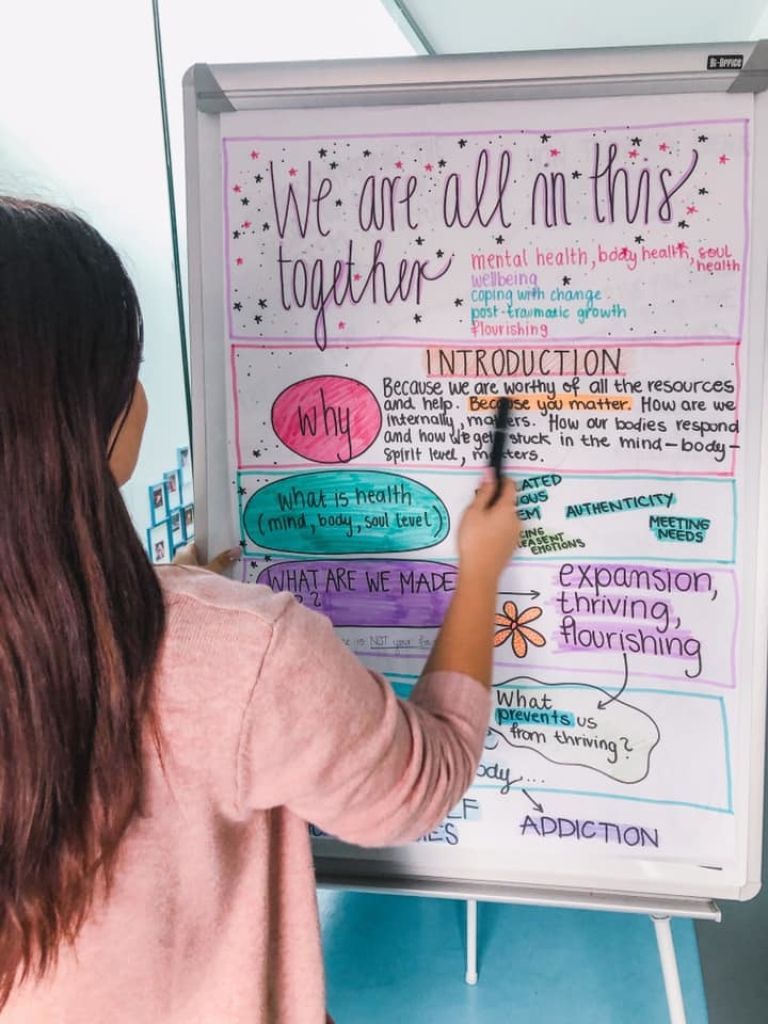 BI-OFFICE
We are all in this
together
mental health, body health, soul
health
wellbeing
coping with change
post-traumatic growth
flourishing
INTRODUCTION
why
Because we are worthy of all the resources
and help. Because you matter. How are we
internally, matters. How our bodies respond
and how we get stuck in the mind-body-
spirit level, matters.
What is health
(mind, body, soul level)
AUTHENTICITY
MEETING
NEEDS
EMOTIONS
WHAT ARE WE MADE
expansion,
thriving,
flourishing
is NOT your
What
prevents us
from thriving?
ADDICTION